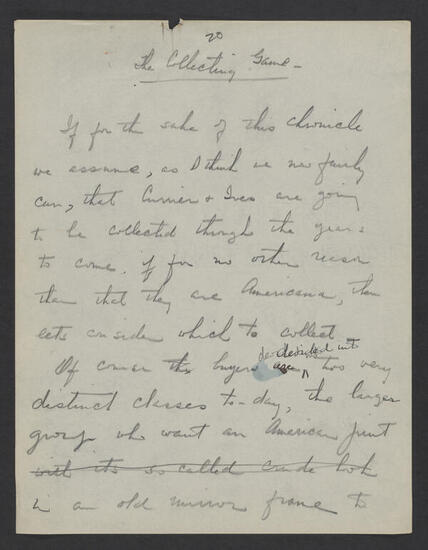 20
The Collecting Game -
If for the sake of this chronicle
we assume, as I think we now fairly
can, that Currier & Ives are going
to be collected through the years
to come, if for no other reason
than that they are Americana, then
lets consider which to collect.
divided into
Of course the buyers are two very
distinct classes to-day, the larger
group who want an American print
with its so called crude look
in an old mirror frame to